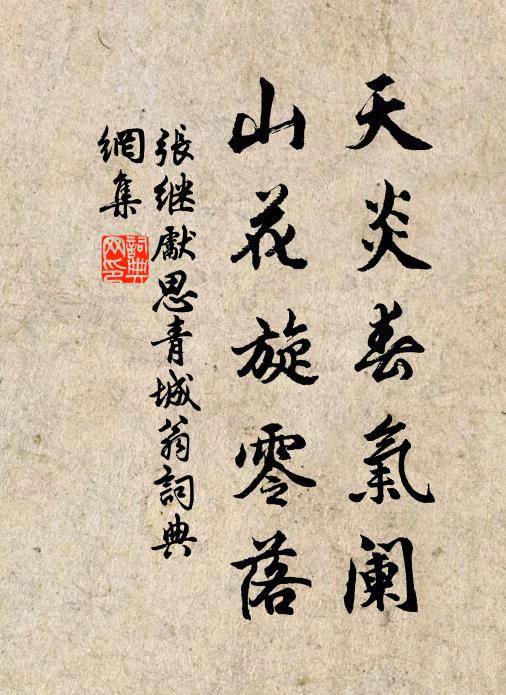 天炎春氣阑
山花旋零落
張继獻思青城翁詞典
網集
詞典
网印